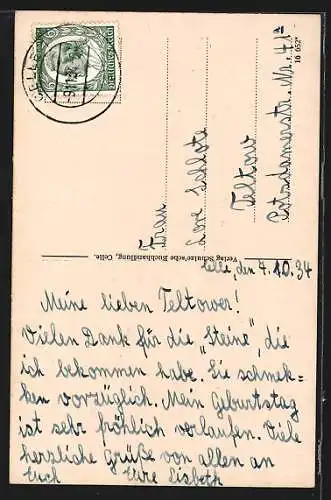 CELLE
Frau
Lore Schlote
Teltow
Potsdamerstr. Nr. 47a
16 652*
Verlag Schulze'sche Buchhandlung, Celle.
Celle, den 7.10.34
Meine lieben Teltower!
Vielen Dank für die „Steine", die
ich bekommen habe. Sie schmek-
ken vorzüglich. Mein Geburtstag
ist sehr fröhlich verlaufen. Viele
herzliche Grüße von allen an
Euch Eure Lisbeth